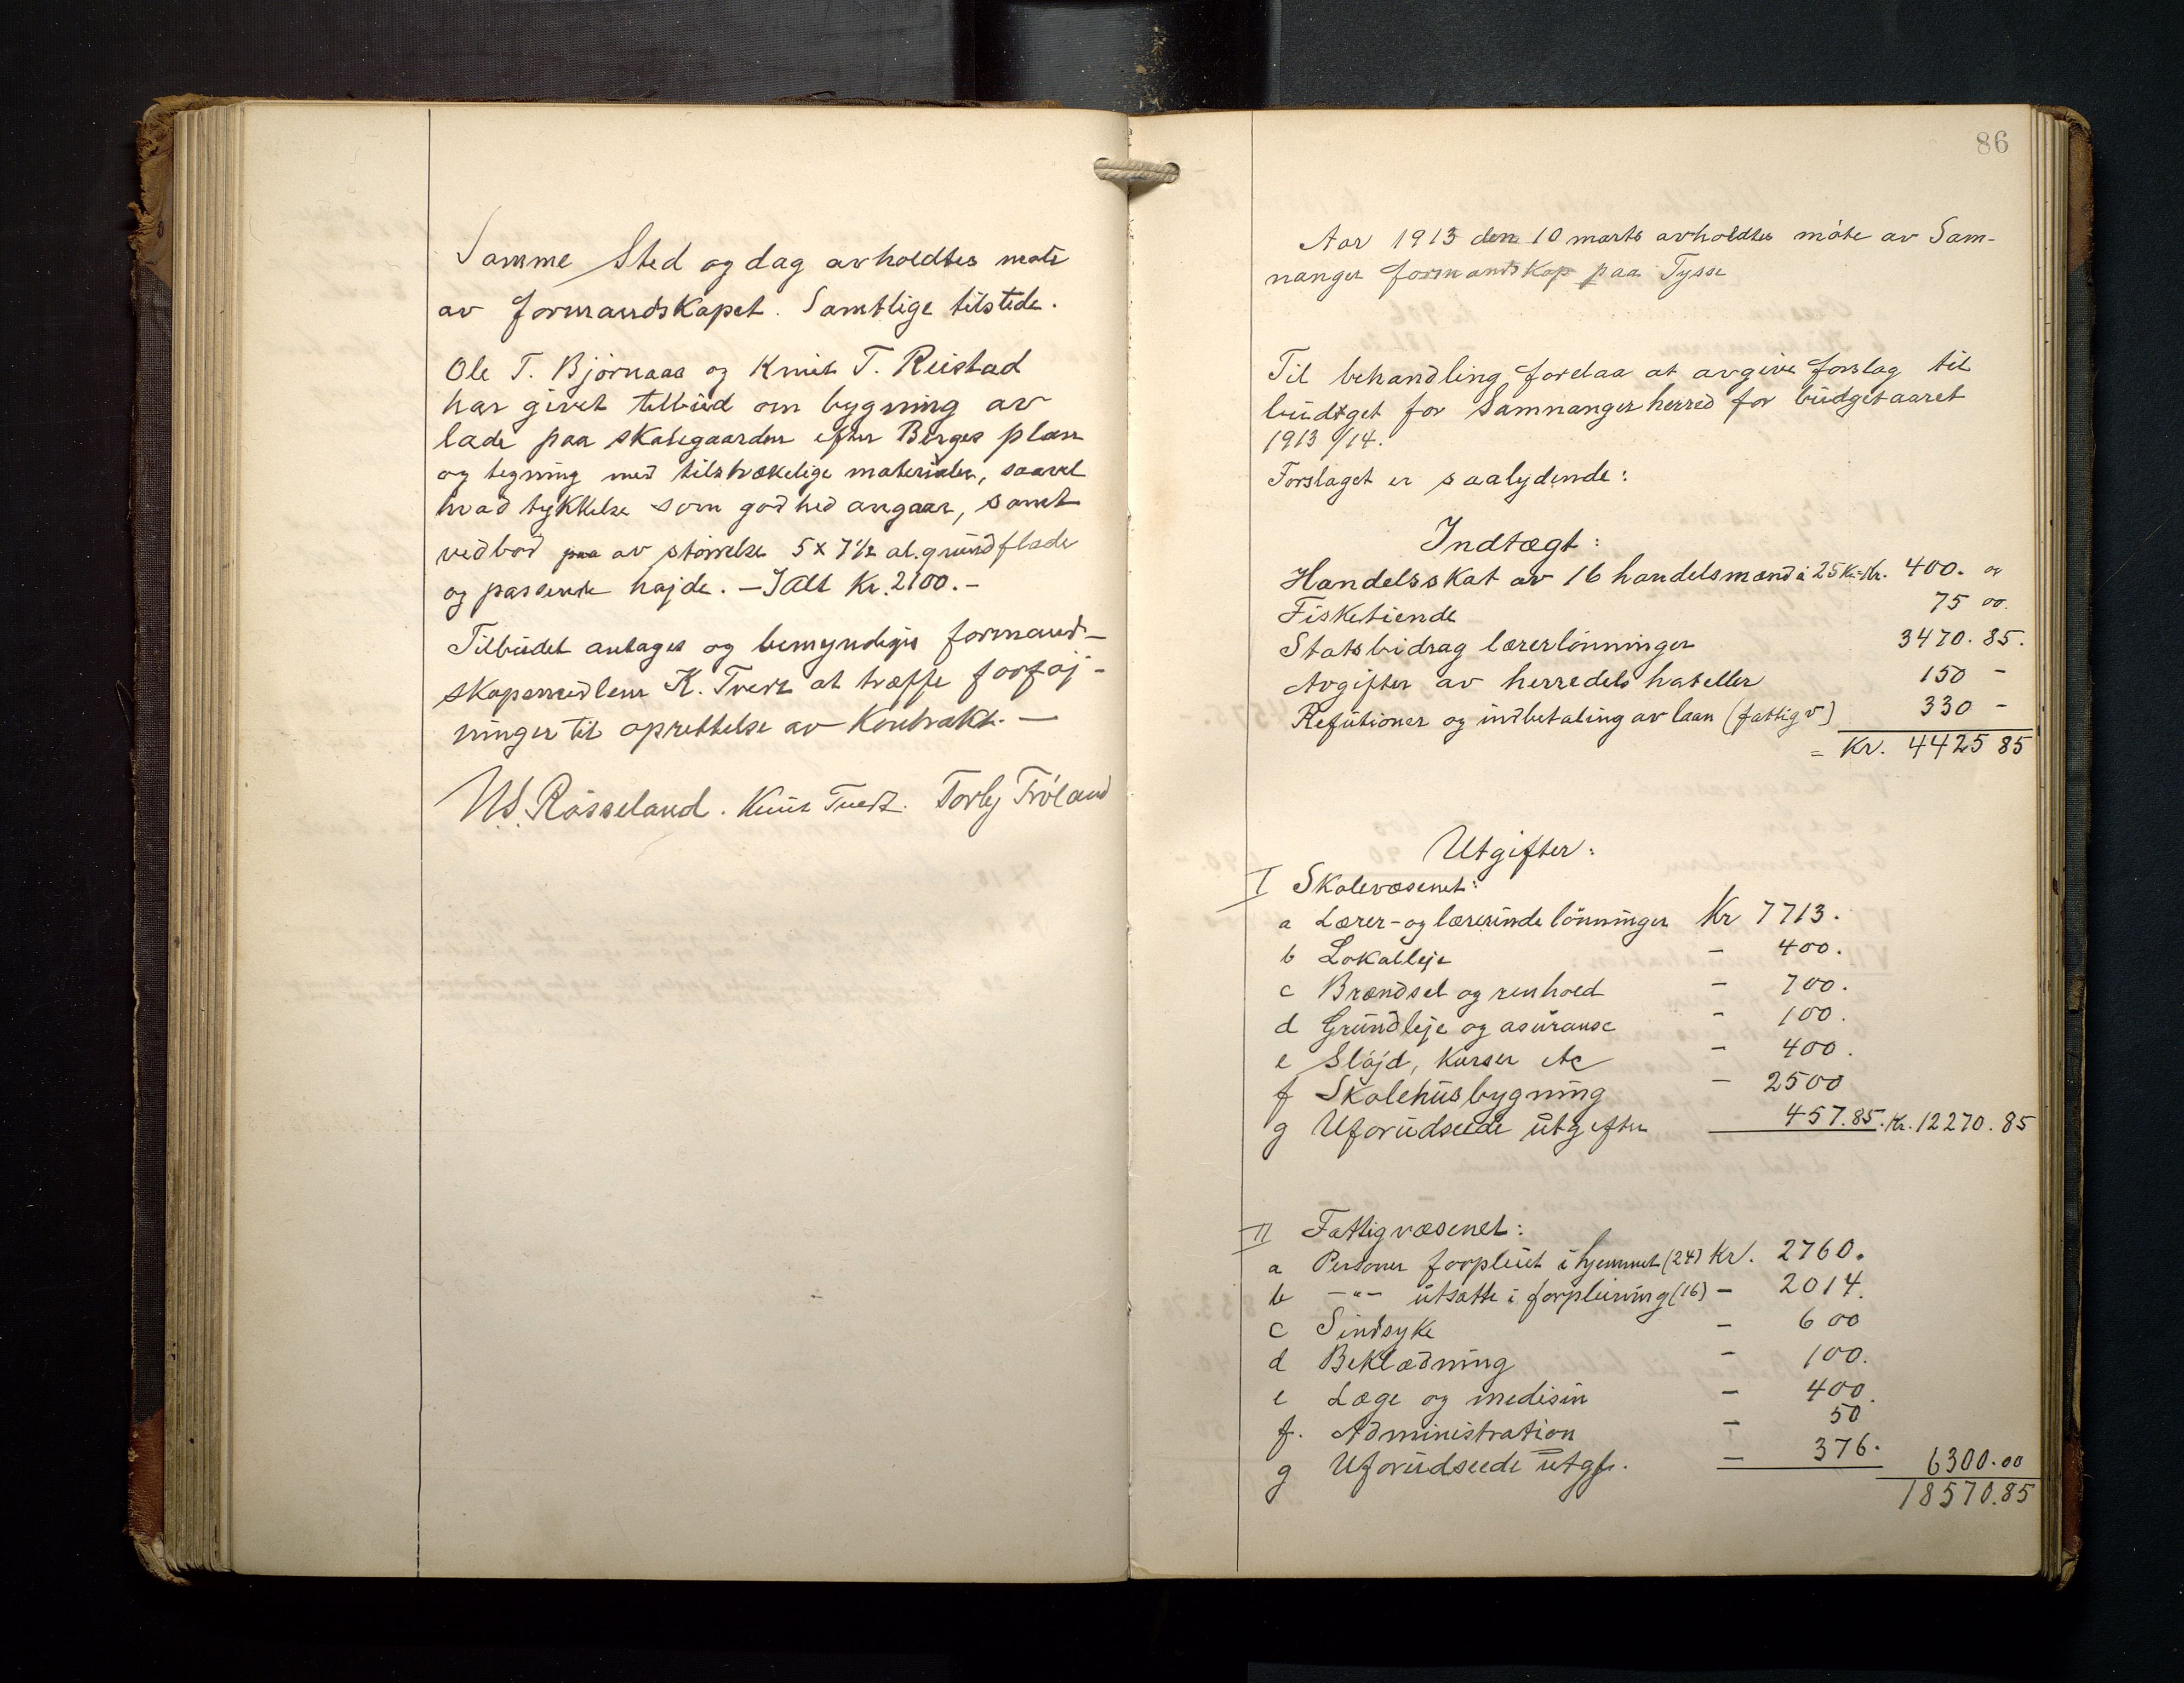 Samme Sted og dag avholdtes møte
av formandskapet. Samtlige tilstede.
Ole T. Bjørnaaa og Knut T. Reistad
har givet tilbud om bygning av
lade paa skolegaarden efter Berges plan
og tegning med tilstrækkelige materialer, saavel
hvad tykkelse som godhed angaar, samt
vedbod paa av størrelse 5 x 7 1/2 al. grundflade
og passende højde. – I alt Kr. 2100.–
Tilbudet antages og bemyndiges formand-
skapsmedlem K. Tvedt at træffe forføj-
ninger til oprettelse av Kontrakt. –
N.S. Røsseland. Knut Tvedt. Torlj Trøland
86
Aar 1913 den 10 marts avholdtes møte av Sam-
nanger formandskap paa Tysse
Til behandling forelaa at avgive forslag til
budtget for Samnanger herred for budgetaaret
1913/14.
Forslaget er saalydende:
Indtægt:
Handelsskat av 16 handelsmænd à 25 Kr. = Kr. 400. 00
Fisketiende 75 00.
Statsbidrag lærerlønninger 3470.85.
Avgifter av herredets hateller 150 –
Refutioner og indbetaling av laan (fattigv) 330 –
= Kr. 4425 85
Utgifter:
I Skolevæsenet:
a Lærer- og lærerinde lønninger Kr 7713.
b Lokalleje – 400.
c Brændsel og renhold – 700.
d Grundleje og asuranse – 100.
e Sløjd, Kurser etc – 400.
f Skolehusbygning – 2500
g Uforudseede utgifter 457.85. Kr. 12270.85
II Fattigvæsenet:
a Personer forpleiet i hjemmet (24) Kr. 2760.
b –"– utsatte i forpleining (16) – 2014.
c Sindsyke – 600
d Beklædning – 100.
e Læge og medisin – 400.
f. Administration – 50
g Uforudseede utgf. – 376. 6300.00
18570.85